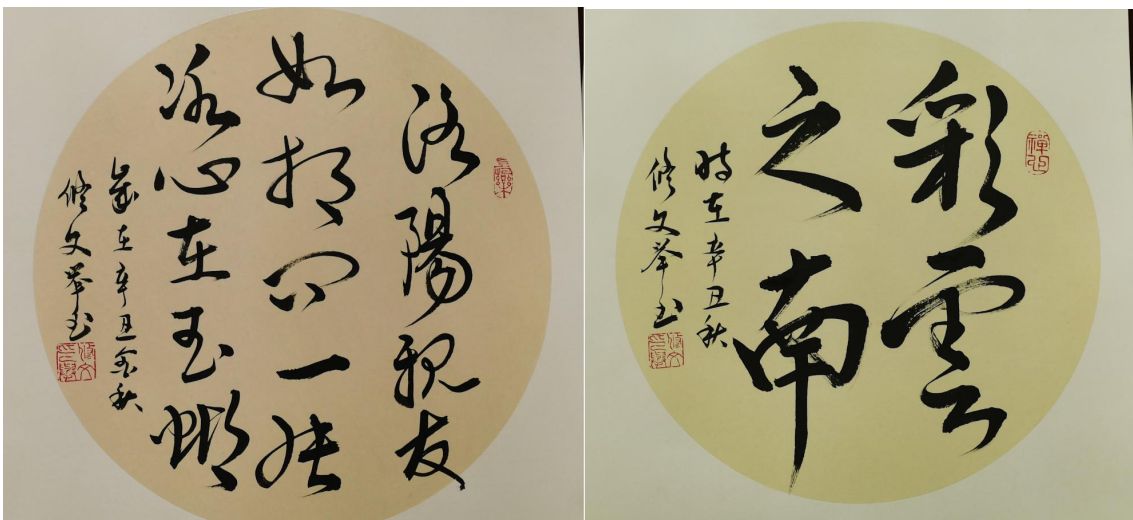 洛陽親友
如相问一
冰心在玉
歲在辛丑金秋
修文举书
彩雲
之南
時在辛丑秋
修文举书